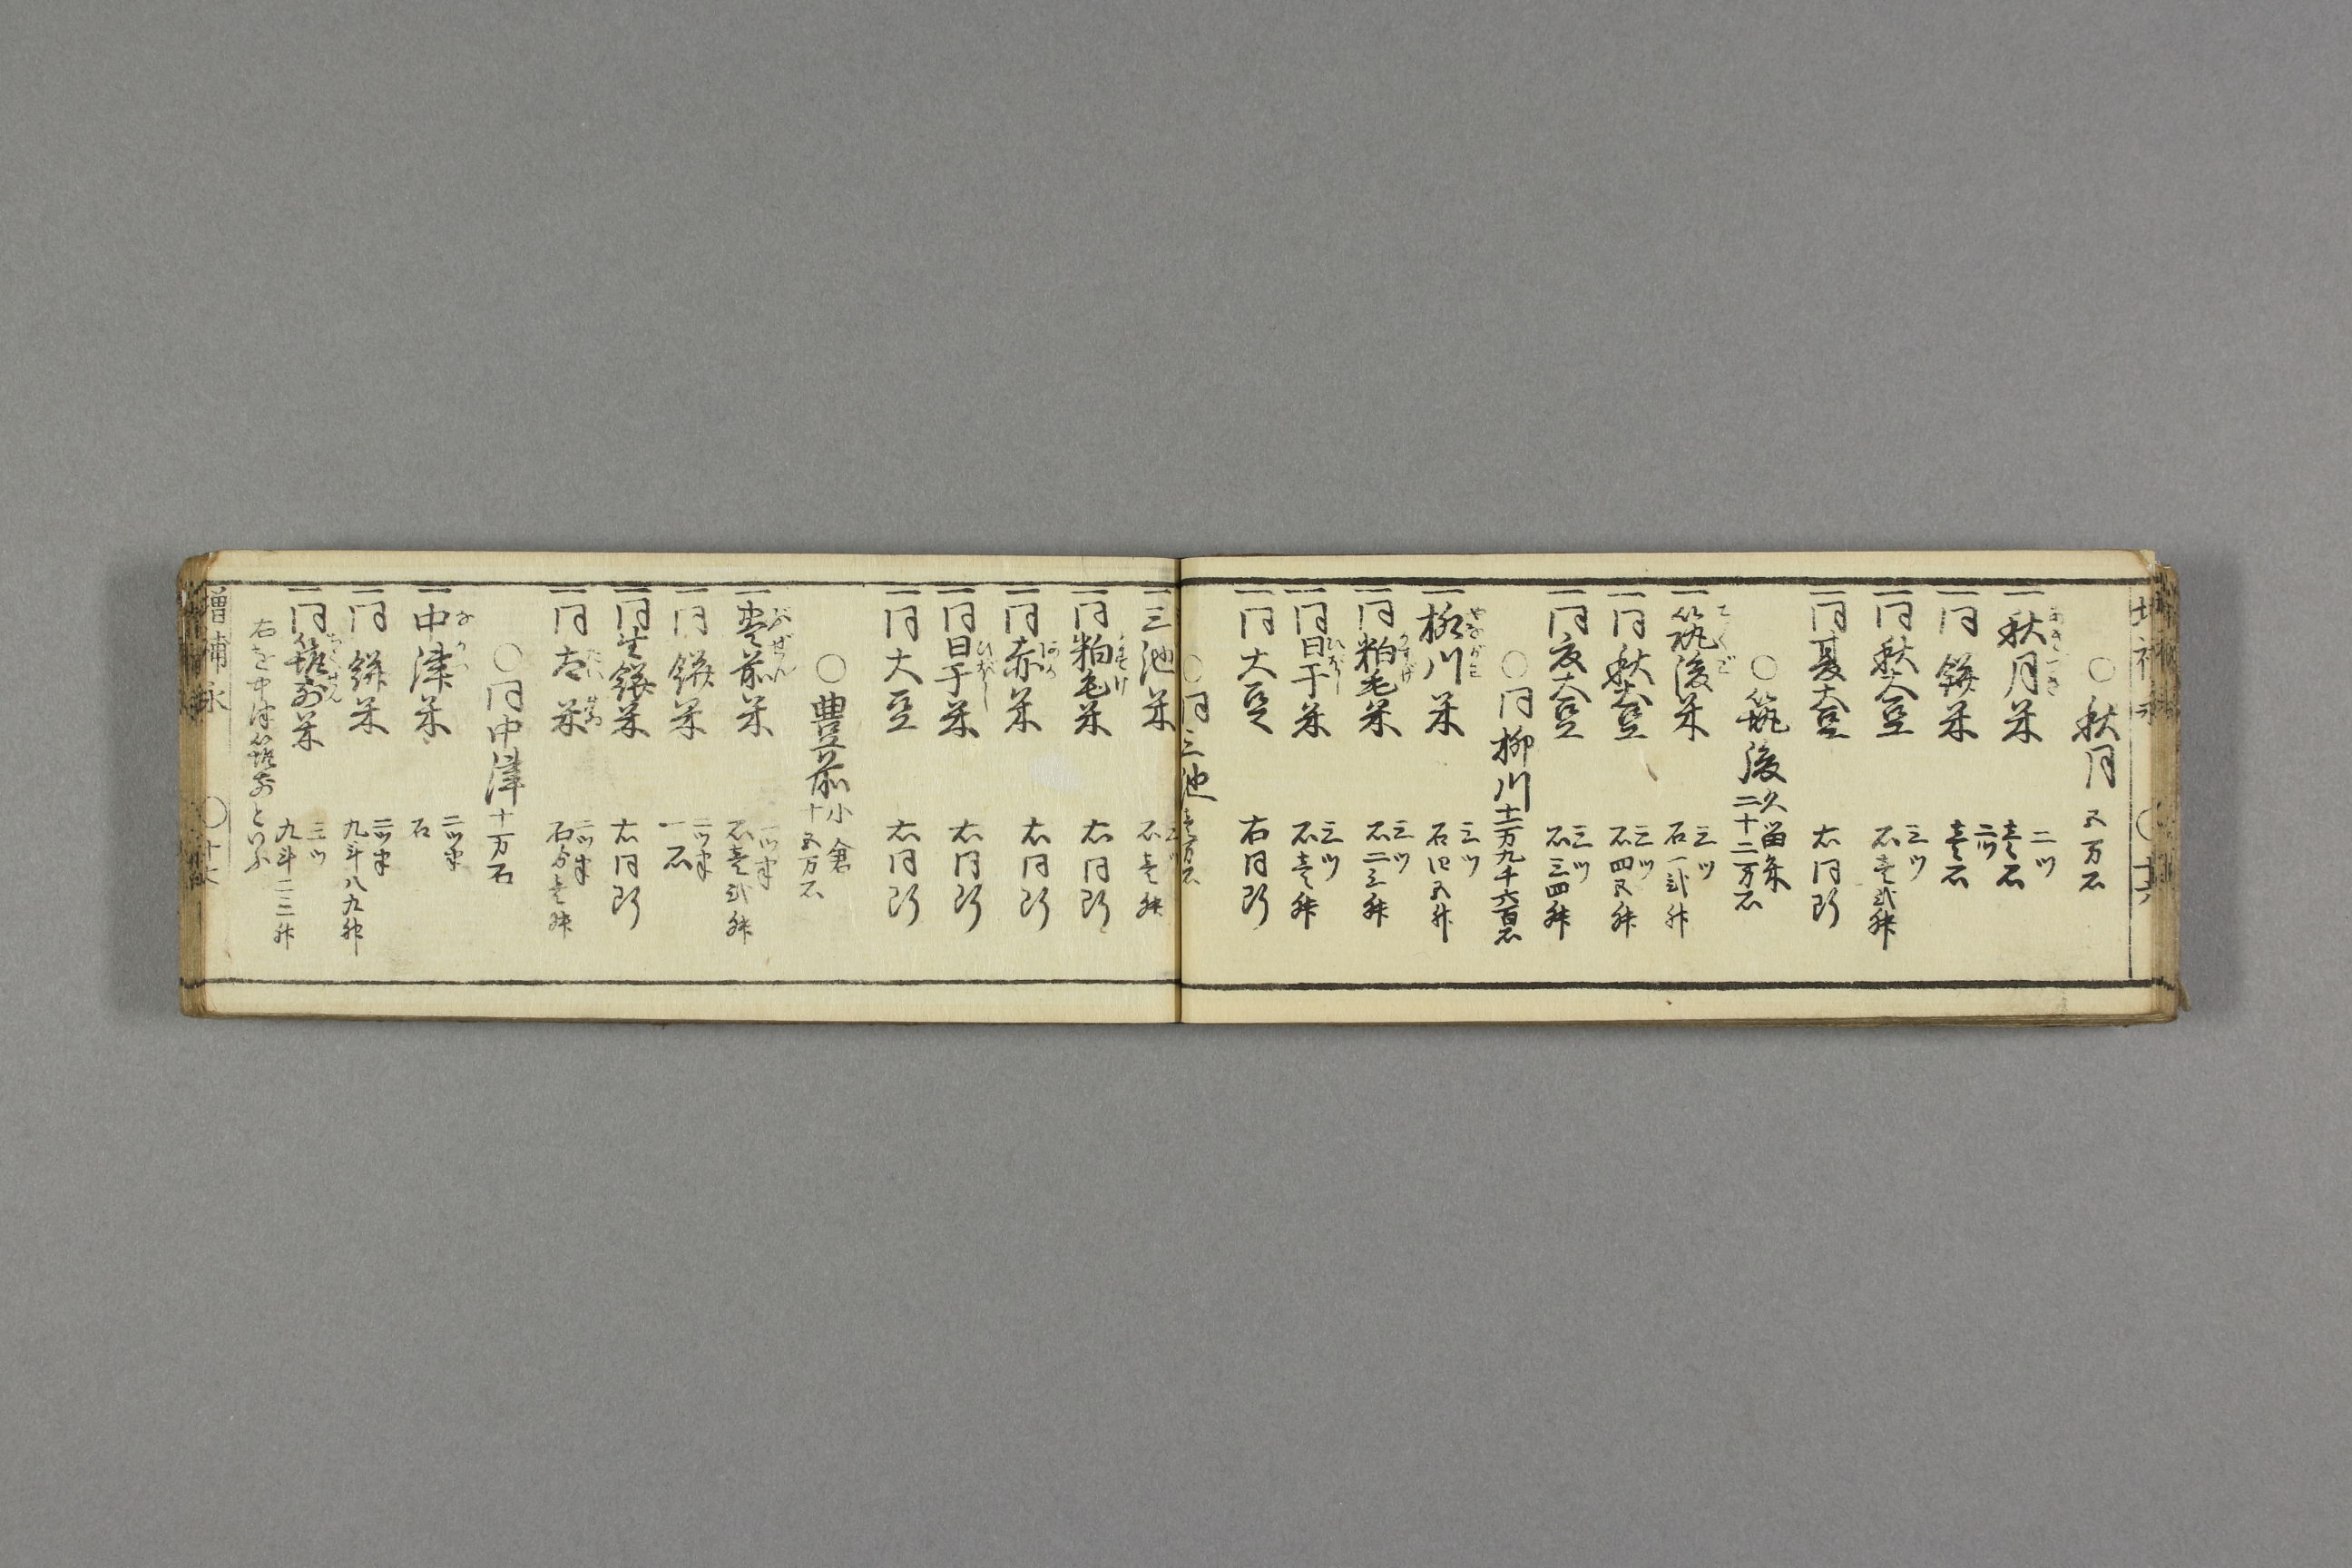 ○秋月 五万石
一秋月米 二ツ 壱石
一同餅米 二ツ 壱石
一同秋大豆 三ツ 石壱弐舛
一同夏大豆 右同断
○筑後 久留米 二十二万石
一筑後米 三ツ 石一弐舛
一同秋大豆 三ツ 石四五舛
一同夏大豆 三ツ 石三四舛
○同柳川 十一万九千六百石
一柳川米 三ツ 石四五舛
一同粕毛米 三ツ 石二三舛
一同日干米 三ツ 石壱舛
一同大豆 右同断
○同三池 壱万石
一三池米 三ツ 石壱舛
一同粕毛米 右同断
一同赤米 右同断
一同日干米 右同断
一同大豆 右同断
○豊前 小倉 十五万石
一豊前米 二ツ半 石壱弐舛
一同餅米 二ツ半 一石
一同生餅米 右同断
一同太米 二ツ半
○同中津 十万石
一中津米 二ツ半 石
一同餅米 二ツ半 九斗八九舛
一同筑前米 三ツ 九斗二三舛
右を中津筑前といふ
増補